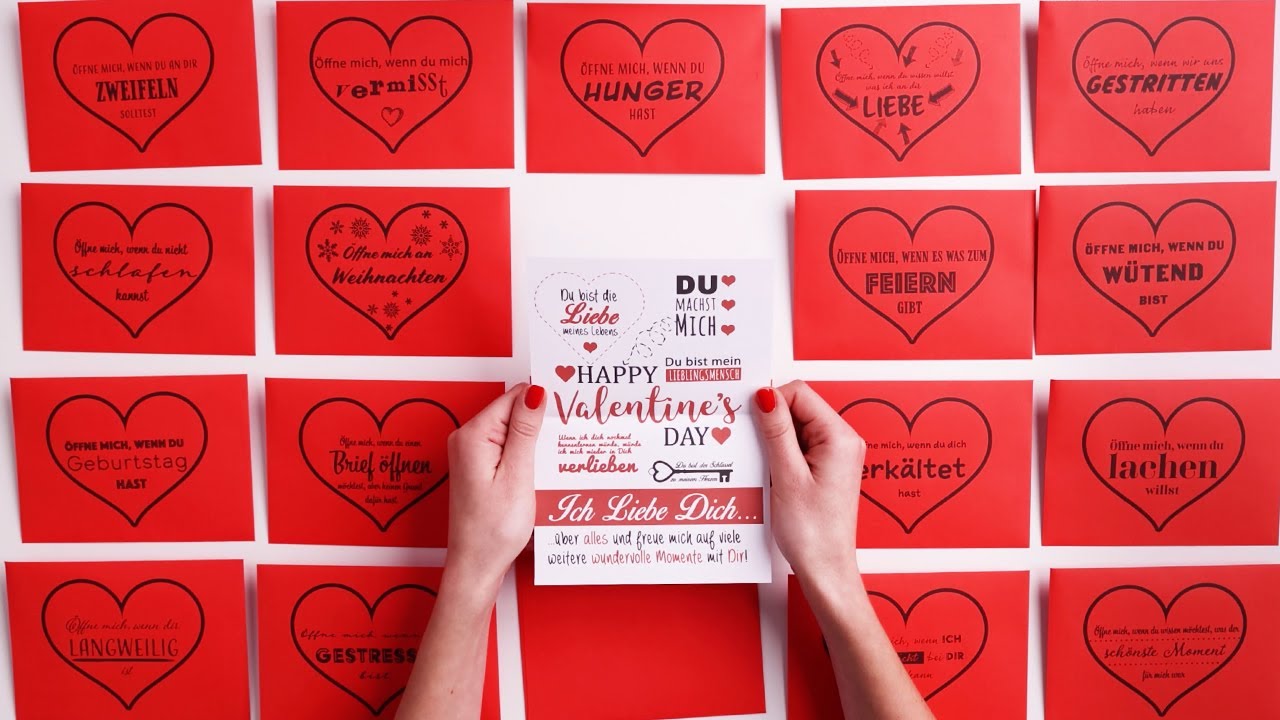 ÖFFNE MICH, WENN DU AN DIR
ZWEIFELN
SOLLTEST
Öffne mich, wenn du mich
vermisst
ÖFFNE MICH, WENN DU
HUNGER
HAST
Öffne mich, wenn du wissen willst
was ich an dir
LIEBE
Öffne mich, wenn wir uns
GESTRITTEN
haben
Öffne mich, wenn du nicht
schlafen
kannst
Öffne mich an
Weihnachten
ÖFFNE MICH, WENN ES WAS ZUM
FEIERN
GIBT
ÖFFNE MICH, WENN DU
WÜTEND
BIST
Du bist die
Liebe
meines Lebens
DU
MACHST
MICH
HAPPY
Du bist mein
LIEBLINGSMENSCH
Valentine's
DAY
Wenn ich dich nochmal
kennenlernen würde, würde
ich mich wieder in Dich
verlieben
Du bist der Schlüssel
zu meinem Herzen
Ich Liebe Dich...
...über alles und freue mich auf viele
weitere wundervolle Momente mit Dir!
ÖFFNE MICH, WENN DU
Geburtstag
HAST
Öffne mich, wenn du einen
Brief öffnen
möchtest, aber keinen Grund
dafür hast
Öffne mich, wenn du dich
erkältet
hast
Öffne mich, wenn du
lachen
willst
Öffne mich, wenn dir
LANGWEILIG
ist
Öffne mich, wenn
GESTRESS
bist
mich, wenn ICH
cht bei DIR
kann
Öffne mich, wenn du wissen möchtest, was der
schönste Moment
für mich war